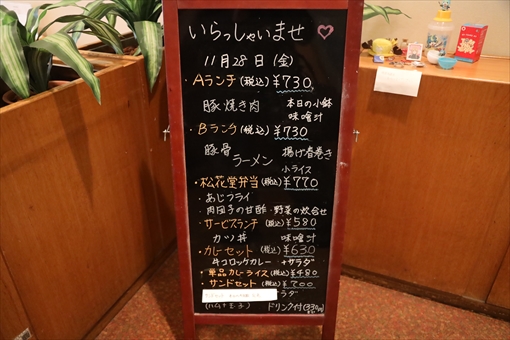 いらっしゃいませ
11月28日(金)
・Aランチ(税込)¥730
豚焼き肉 本日の小鉢
味噌汁
・Bランチ(税込)¥730
豚骨 揚げ春巻き
ラーメン 小ライス
・松花堂弁当(税込)¥770
・あじフライ
・肉団子の甘酢・野菜の炊合せ
・サービスランチ(税込)¥580
カツ丼 味噌汁
・カレーセット(税込)¥630
牛コロッケカレー +サラダ
・単品カレーライス(税込)¥480
・サンドセット(税込)¥700
サラダ
(ハム+玉子) ドリンク付